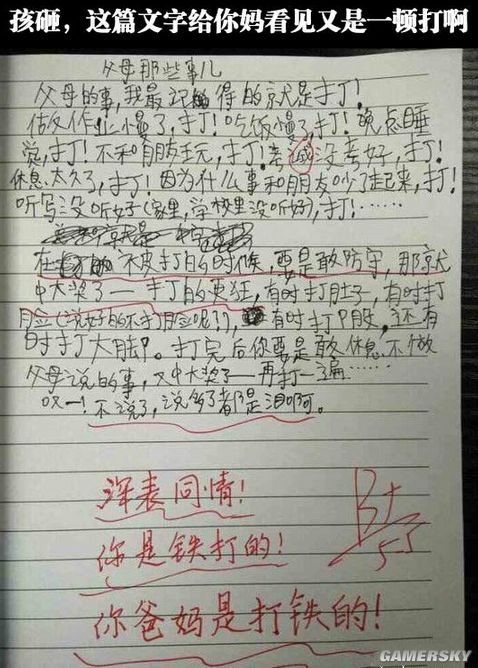 孩砸，这篇文字给你妈看见又是一顿打啊
父母那些事儿
父母的事，我最记得的就是打！
作业慢了，打！吃饭慢了，打！晚点睡
觉，打！不和朋友玩，打！考试没考好，打！
休息太久了，打！因为什么事和朋友吵了起来，打！
听写没听好(家里，学校里没听好)，打！……
在被打的时候，要是敢防守，那就
中大奖了——打的更狂，有时打肚子，有时打
脸(说好的不打脸呢？)，有时打P股，还有
时打大脚。打完后你要是敢休息不做
父母说的事，又中大奖了——再打一遍……
哎一！不说了，说多了都是泪啊。
深表同情！
你是铁打的！
你爸妈是打铁的！
B+
GAMERSKY